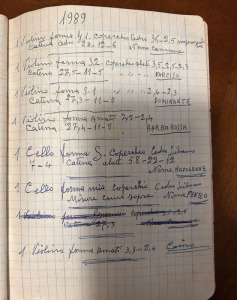 1989
1 Violino forma 41. Coperchio Cedro 3,5-2,5
Catena Cedro 28-12-6 Nome
1 Violino forma 32. Coperchio abete 3,5,2,5,3
Catena 27,5-11-5 NARCISO
1 Violino forma S.1 2,4-2,3
Catena 27,3-11-5 DOMINANTE
1 Violino forma Amati 3,5-2,4
Catena 27,4-11-5 BARBAROSSA
1 Cello forma S. Coperchio Cedro Libano
7-4 Catena abete 58-22-12
Nome NAPOLEONE
1 Cello forma mia Coperchio Cedro Libano
Misure come sopra Nome
1 Violino forma Coperchio
Catena 27,3
1 Violino forma Amati 3,3-2,4